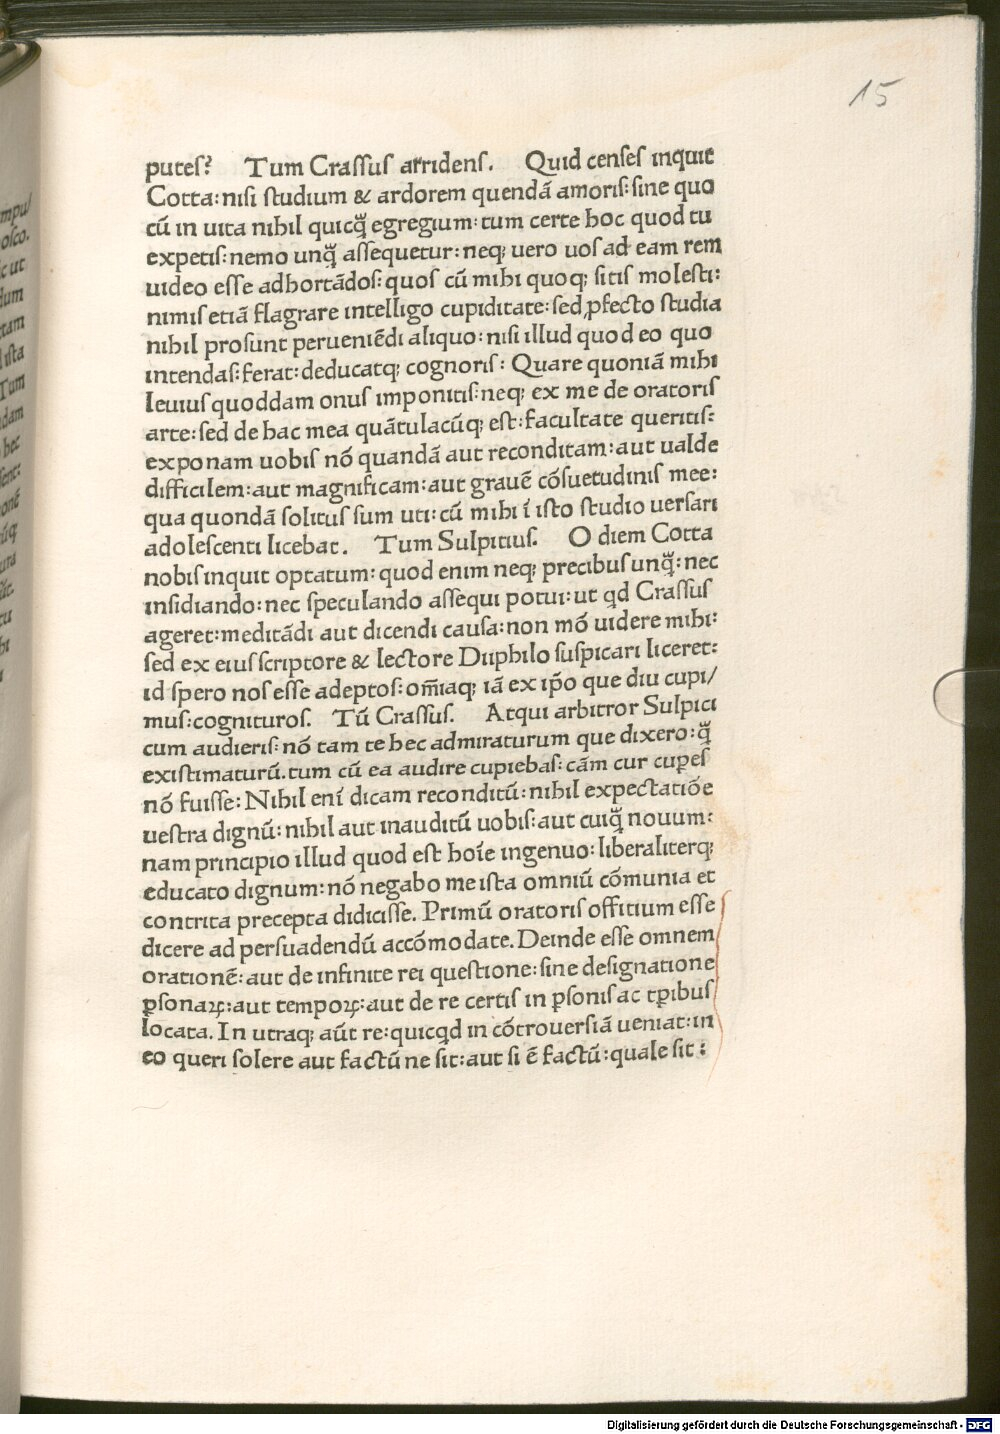 15
puteſ? Tum Craſſuſ arridenſ. Quid cenſeſ inquit
Cotta: niſi ſtudium & ardorem quendā amoriſ: ſine quo
cū in uita nihil quicq̃ egregium: tum certe hoc quod tu
expetiſ: nemo unq̃ aſſequetur: neq; uero uoſ ad eam rem
uideo eſſe adhortādoſ: quoſ cū mihi quoq; ſitiſ moleſti:
nimiſ etiā flagrare intelligo cupiditate: ſed ꝓfecto ſtudia
nihil proſunt perueniēdi aliquo: niſi illud quod eo quo
intendaſ: ferat: deducatq; cognoriſ: Quare quoniā mihi
leuiuſ quoddam onuſ imponitiſ: neq; ex me de oratoriſ
arte: ſed de hac mea quātulacūq; eſt: facultate queritiſ:
exponam uobiſ nō quandā aut reconditam: aut ualde
difficilem: aut magnificam: aut grauē cōſuetudiniſ mee:
qua quondā ſolituſ ſum uti: cū mihi ī iſto ſtudio uerſari
adoleſcenti licebat. Tum Sulpitiuſ. O diem Cotta
nobiſ inquit optatum: quod enim neq; precibuſ unq̃: nec
inſidiando: nec ſpeculando aſſequi potui: ut qd Craſſuſ
ageret: meditādi aut dicendi cauſa: non mō uidere mihi:
ſed ex eiuſ ſcriptore & lectore Diiphilo ſuſpicari liceret:
id ſpero noſ eſſe adeptoſ: om̄iaq; iā ex ip̄o que diu cupi/
muſ: cognituroſ. Tū Craſſuſ. Atqui arbitror Sulpici
cum audieriſ: nō tam te hec admiraturum que dixero: q̃
exiſtimaturū. tum cū ea audire cupiebaſ: cām cur cuꝑeſ
nō fuiſſe: Nihil enī dicam reconditū: nihil expectatiōe
ueſtra dignū: nihil aut inauditū uobiſ: aut cuiq̃ nouum:
nam principio illud quod eſt hoīe ingenuo: liberaliterq;
educato dignum: nō negabo me iſta omniū cōmunia et
contrita precepta didiciſſe. Primū oratoriſ offitium eſſe
dicere ad perſuadendū accōmodate. Deinde eſſe omnem
orationē: aut de infinite rei queſtione: ſine deſignatione
ꝑſonaꝝ: aut tempoꝝ: aut de re certiſ in ꝑſoniſ ac tꝑibuſ
locata. In utraq; aūt re: quicqd in cōtrouerſiā ueniat: in
eo queri ſolere aut factū ne ſit: aut ſi ē factū: quale ſit:
Digitalisierung gefördert durch die Deutsche Forschungsgemeinschaft - DFG